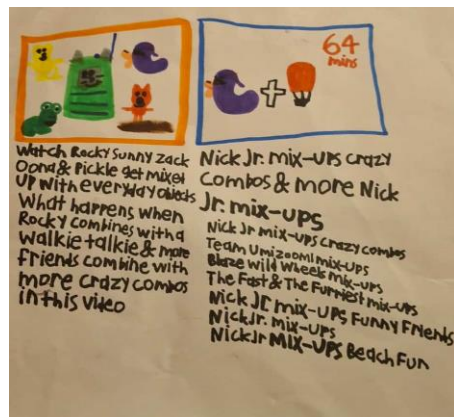 64
mins
Watch Rocky Sunny zack
Oona & Pickle get mixed
UP with everyday objects
What happens when
Rocky combines with a
Walkie talkie & more
friends combine with
more crazy combos
in this video
Nick Jr. mix-ups crazy
Combos & more Nick
Jr. mix-ups
Nick Jr mix-ups crazy combos
Team Umizoomi mix-ups
Blaze Wild Wheels mix-ups
The Fast & The Furriest mix-ups
Nick Jr mix-ups Funny Friends
Nick Jr. mix-ups
Nick Jr MIX-UPS Beach Fun